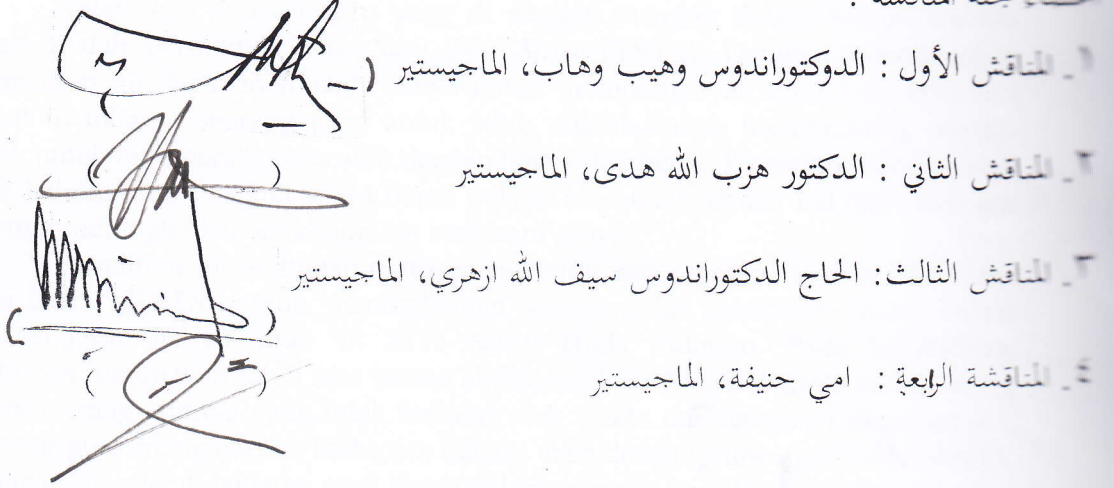 أعضاء لجنة المناقشة :
١ـ المناقش الأول : الدوكتوراندوس وهيب وهاب، الماجيستير ( )
٢ـ المناقش الثاني : الدكتور هزب الله هدى، الماجيستير ( )
٣ـ المناقش الثالث: الحاج الدكتوراندوس سيف الله ازهري، الماجيستير ( )
٤ـ المناقشة الرابعة : امي حنيفة، الماجيستير ( )